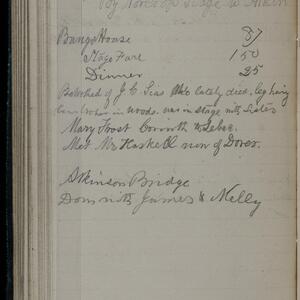 By
Stage to
Bangs House 87
Stage Fare 150
Dinner 25
Betrothed of J. C. Seas who lately died, leg having
been broken in woods. was in stage with Sister
Mary Frost Corinth
Met Mr Haskell now of Dover.
Atkinson Bridge
Down with James & Melly